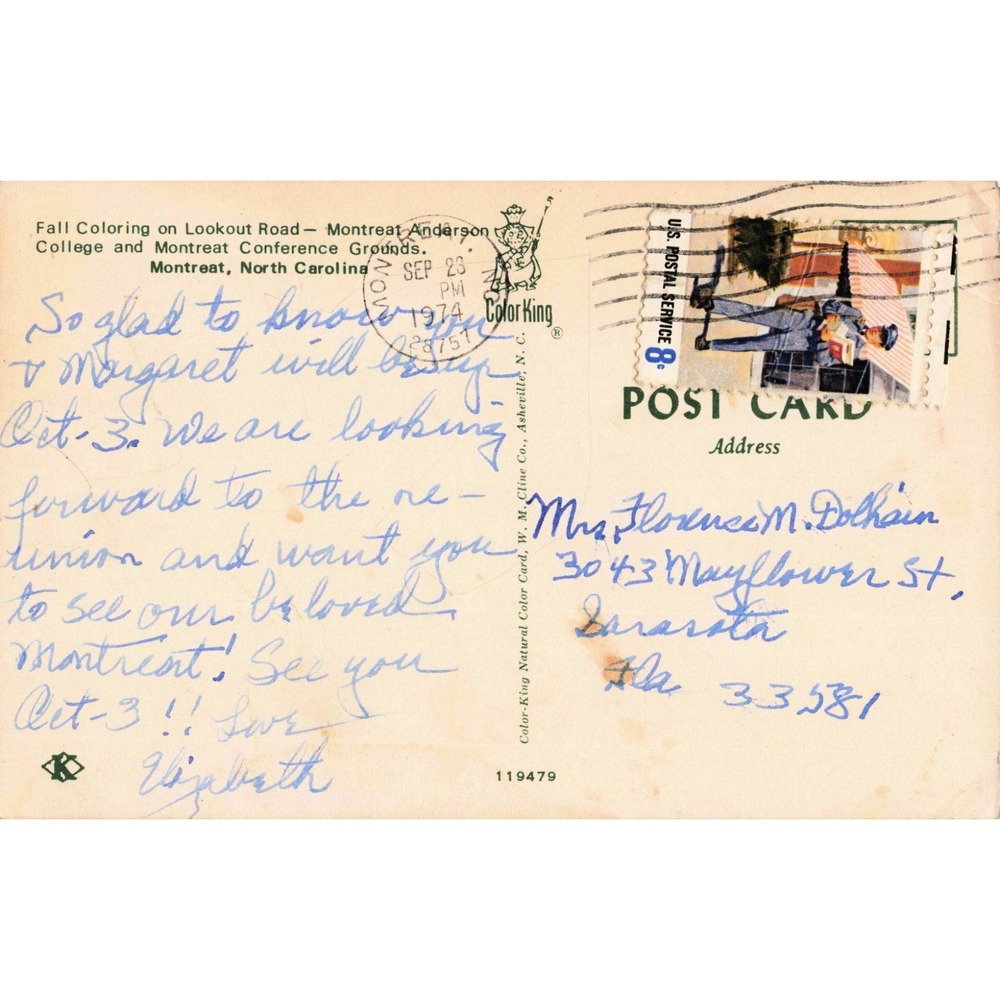 Fall Coloring on Lookout Road — Montreat Anderson
College and Montreat Conference Grounds.
Montreat, North Carolina
So glad to know you
& Margaret will be up
Oct-3. We are looking
forward to the re-
union and want you
to see our beloved
Montreat! See you
Oct-3!! Love
Elizabeth
K
SEP 23
PM
1974
28757
ColorKing
®
Color-King Natural Color Card, W. M. Cline Co., Asheville, N. C.
119479
U.S. POSTAL SERVICE 8c
POST CARD
Address
Mrs. Florence M. Dolhain
3043 Mayflower St,
Sarasota
Fla 33581